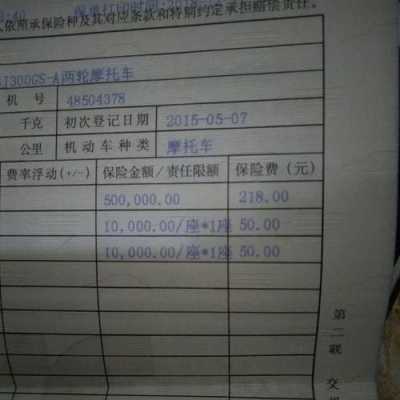 保单打印时间:
依照承保险种及其对应条款和特别约定承担赔偿责任。
J300GS-A两轮摩托车
机 号 48504378
千克 初次登记日期 2015-05-07
公里 机动车种类 摩托车
费率浮动(+/-) 保险金额/责任限额 保险费(元)
500,000.00 218.00
10,000.00/座*1座 50.00
10,000.00/座*1座 50.00
第二联
交